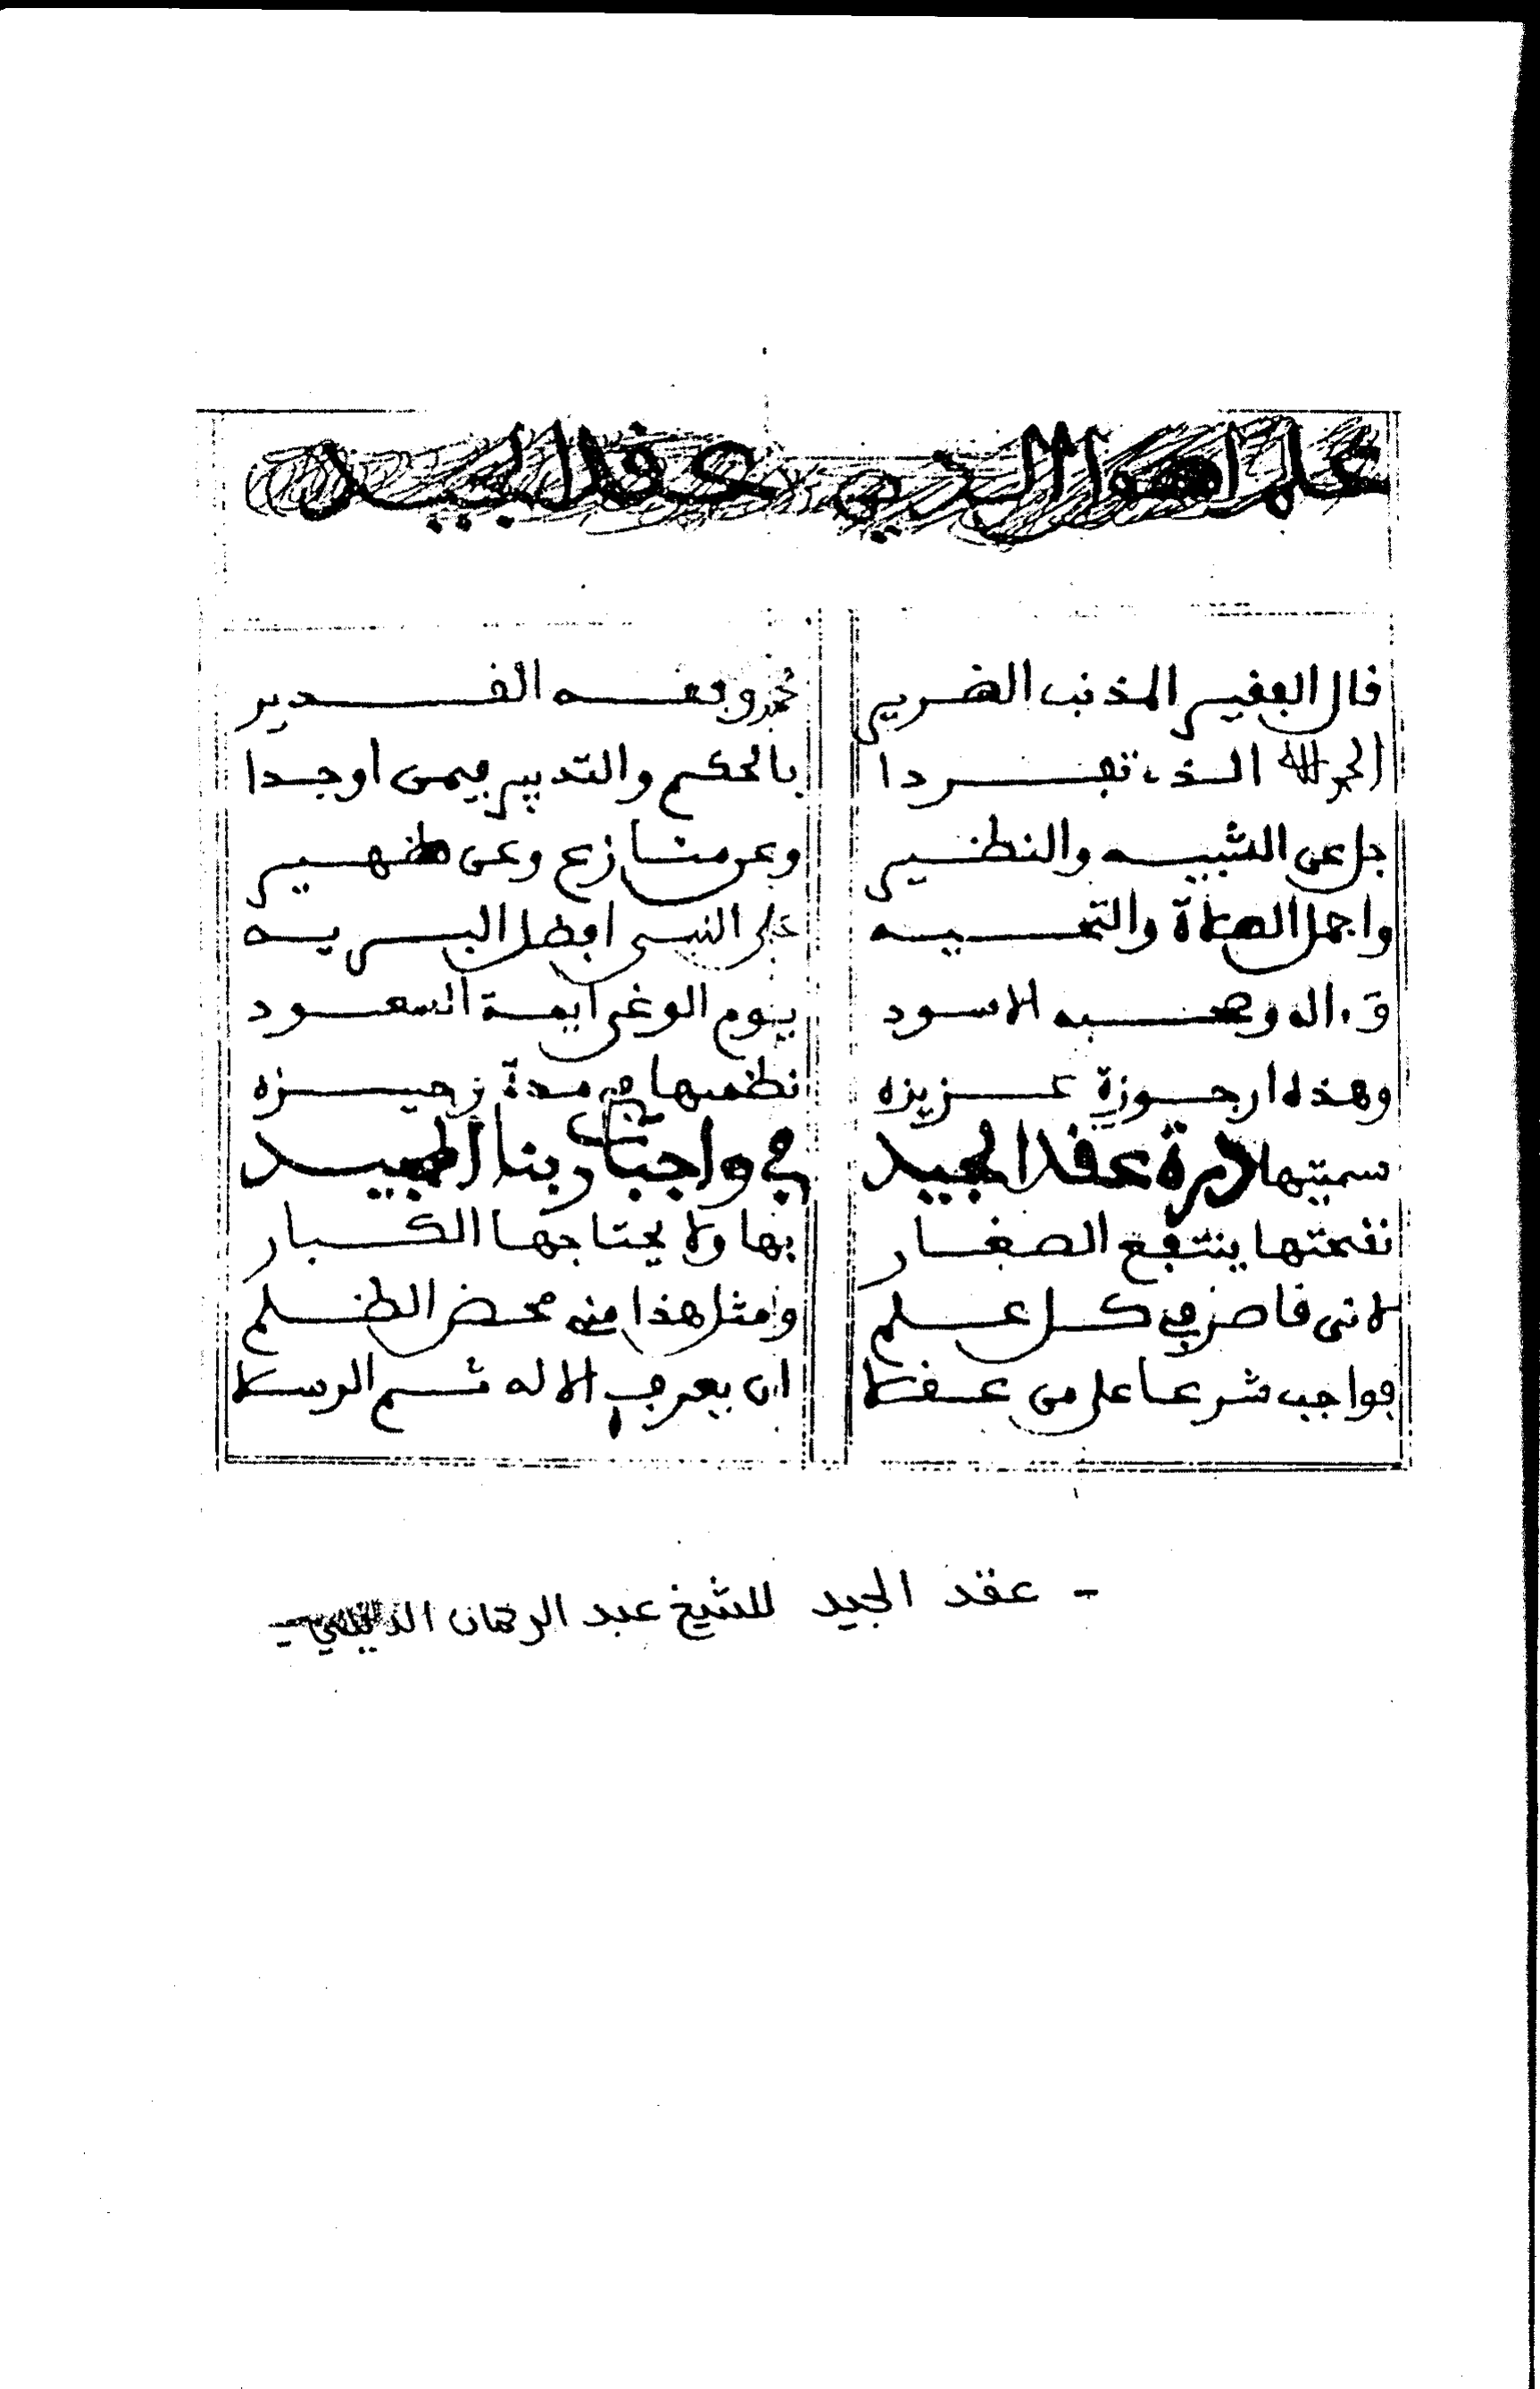 علم اصول الدين عقد الجيد
قال الفقير المذنب الضرير محمد وفقه القدير
الحمد لله الذي تفردا بالحكم والتدبير فيمن اوجدا
جل عن الشبيه والنظير وعن منازع وعن ظهير
واجمل الصلاة والتحيه على النبي افضل البريه
وءاله وصحبه الاسود يوم الوغى ايمة السعود
وهذه ارجوزة عزيزه نظمتها في مدة وجيزه
سميتها درة عقد الجيد في واجبات ربنا المجيد
نقحتها ينتفع الصغار بها ولا يحتاجها الكبار
لانني قاصر في كل علم ومثل هذا منه محض الظلم
فواجب شرعا على من عقلا ان يعرف الاله ثم الرسلا
- عقد الجيد للشيخ عبد الرحمان